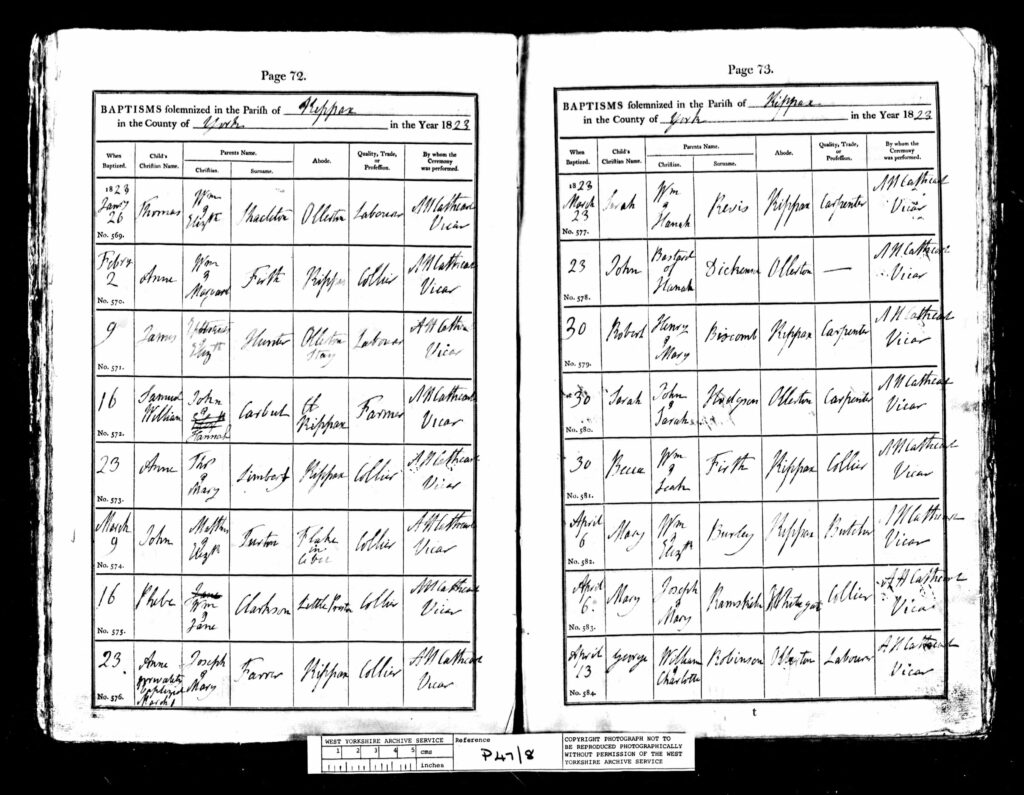 Page 72.
BAPTISMS solemnized in the Parish of Kippax
in the County of York in the Year 1823
When Baptized.
Child's Christian Name.
Parents Name.
Christian. Surname.
Abode.
Quality, Trade, or Profession.
By whom the Ceremony was performed.
1823
Janry 26 Thomas Wm & Elizth Ollerton Labourer Cathcart Vicar
No. 569.
Febry 2 Anne Wm & Margaret Firth Kippax Collier Cathcart Vicar
No. 570.
9 James Elizth Hunter Labourer Vicar
No. 571.
16 Samuel William John & Hannah Of Kippax Farmer Cathcart Vicar
No. 572.
23 Anne Thos & Mary Kippax Collier Cathcart Vicar
No. 573.
March 9 John & Elizth in Collier Cathcart Vicar
No. 574.
16 Phebe Jane Wm & Jane Clarkson Little Preston Collier Cathcart Vicar
No. 575.
23 Anne privately baptized March 1 Joseph & Mary Farrer Kippax Collier Cathcart Vicar
No. 576.
Page 73.
BAPTISMS solemnized in the Parish of Kippax
in the County of York in the Year 1823
When Baptized.
Child's Christian Name.
Parents Name.
Christian. Surname.
Abode.
Quality, Trade, or Profession.
By whom the Ceremony was performed.
1823
March 23 Sarah Wm & Hanah Revis Kippax Carpenter Cathcart Vicar
No. 577.
23 John Bastard of Hanah Ollerton — Cathcart Vicar
No. 578.
30 Robert Henry & Mary Biscomb Kippax Carpenter Cathcart Vicar
No. 579.
30 Sarah John & Sarah Hudgson Ollerton Carpenter Cathcart Vicar
No. 580.
30 Becca Wm & Leah Firth Kippax Collier Cathcart Vicar
No. 581.
April 6 Mary Wm & Elizth Burley Kippax Butcher Cathcart Vicar
No. 582.
April 6 Mary Joseph & Mary Collier Cathcart Vicar
No. 583.
April 13 George William & Charlotte Robinson Ollerton Labourer Cathcart Vicar
No. 584.
t
WEST YORKSHIRE ARCHIVE SERVICE
1 2 3 4 5 cms
inches
Reference
P47/8
COPYRIGHT PHOTOGRAPH NOT TO
BE REPRODUCED PHOTOGRAPHICALLY
WITHOUT PERMISSION OF THE WEST
YORKSHIRE ARCHIVE SERVICE